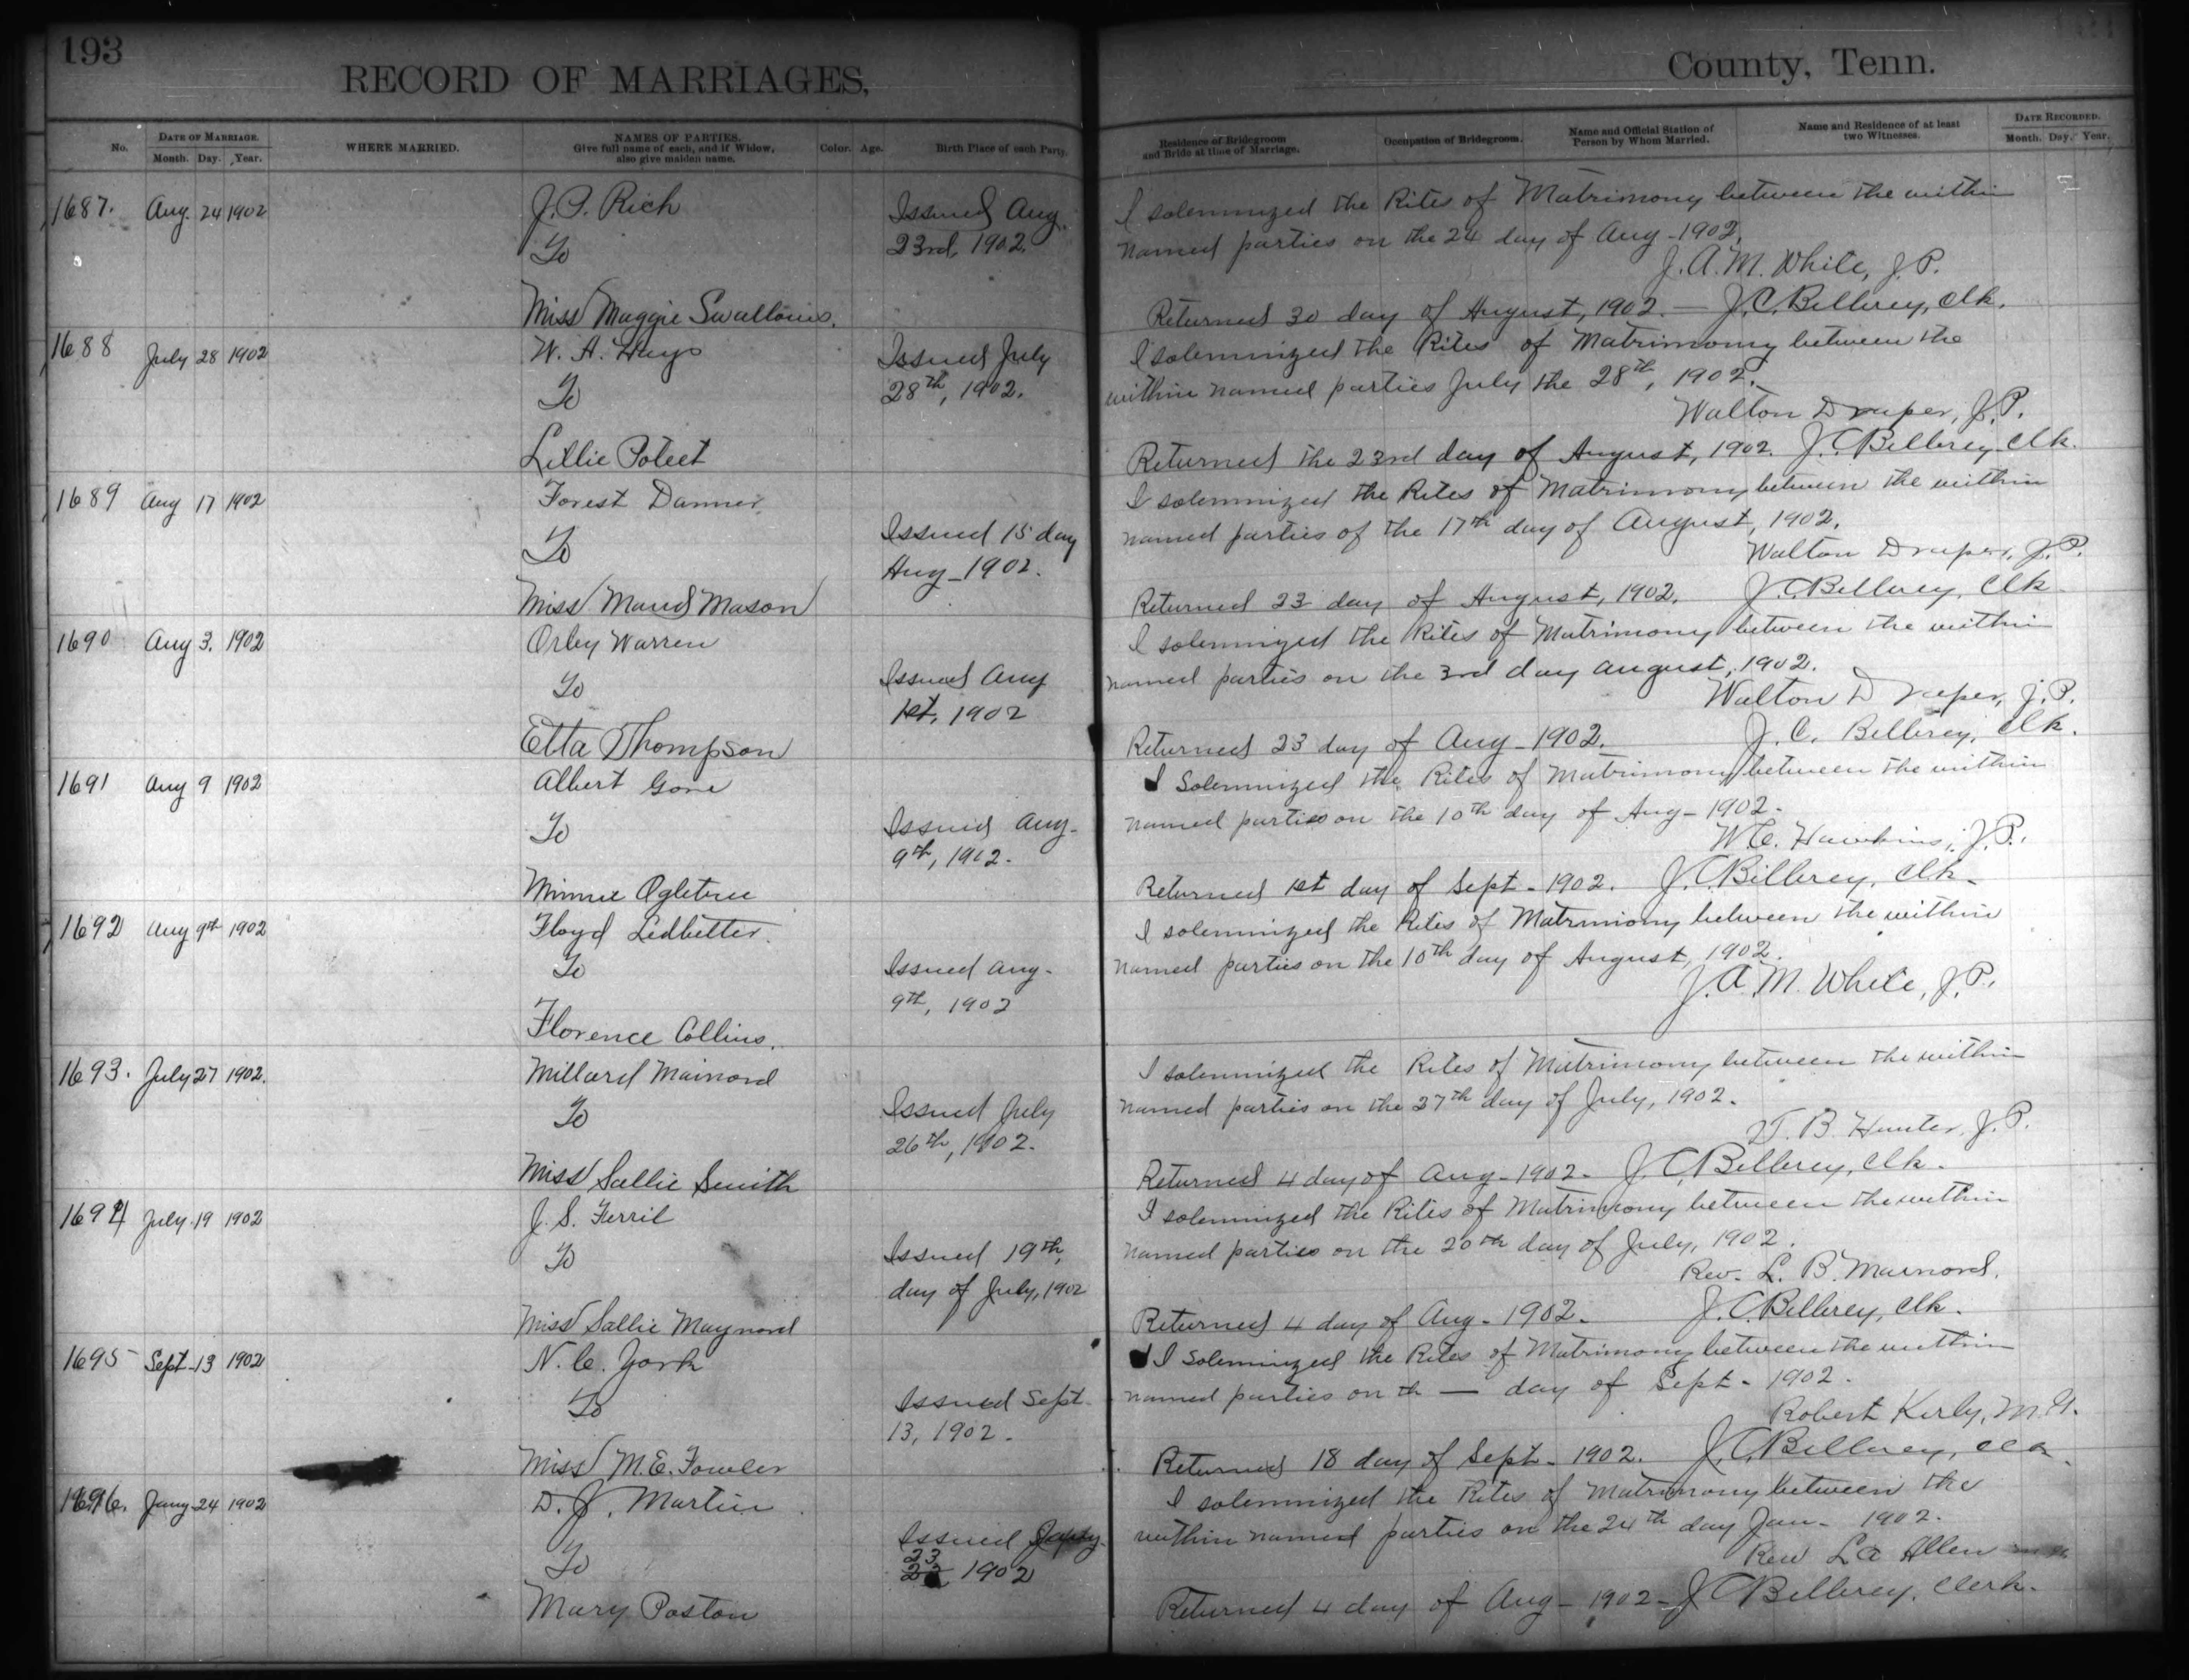 193
RECORD OF MARRIAGES,
County, Tenn.
No.
DATE OF MARRIAGE.
Month. Day. Year.
WHERE MARRIED.
NAMES OF PARTIES.
Give full name of each, and if Widow,
also give maiden name.
Color.
Age.
Birth Place of each Party.
Residence of Bridegroom
and Bride at time of Marriage.
Occupation of Bridegroom.
Name and Official Station of
Person by Whom Married.
Name and Residence of at least
two Witnesses.
DATE RECORDED.
Month. Day. Year.
1687. Aug. 24 1902
J. P. Rich
To
Miss Maggie Swallows.
Issued Aug.
23rd, 1902.
I solemnized the Rites of Matrimony between the within
named parties on the 24 day of Aug - 1902.
J. A. M. White, J. P.
Returned 30 day of August, 1902. — J. C. Bilbrey, Clk.
1688 July 28 1902
W. H. Hays
To
Lillie Poteet
Issued July
28th, 1902.
I solemnized the Rites of Matrimony between the
within named parties July the 28th, 1902.
Walton Draper, J. P.
Returned the 23rd day of August, 1902. J. C. Bilbrey Clk.
1689 Aug 17 1902
Forest Danner
To
Miss Maud Mason
Issued 15 day
Aug - 1902.
I solemnized the Rites of Matrimony between the within
named parties of the 17th day of August, 1902.
Walton Draper, J. P.
Returned 23 day of August, 1902. J. C. Bilbrey, Clk
1690 Aug 3. 1902
Orby Warren
To
Etta Thompson
Issued Aug
1st, 1902
I solemnized the Rites of Matrimony between the within
named parties on the 3rd day August, 1902.
Walton Draper, J. P.
Returned 23 day of Aug - 1902. J. C. Bilbrey, Clk.
1691 Aug 9 1902
Albert Gore
To
Minnie Ogletree
Issued Aug -
9th, 1902.
I Solemnized the Rites of Matrimony between the within
named parties on the 10th day of Aug - 1902.
W. C. Hawkins, J. P.
Returned 1st day of Sept - 1902. J. C. Bilbrey, Clk -
1692 Aug 9th 1902
Floyd Ledbetter.
To
Florence Collins.
Issued Aug -
9th, 1902
I solemnized the Rites of Matrimony between the within
named parties on the 10th day of August, 1902.
J. A. M. White, J. P.
1693. July 27 1902.
Millard Mainord
To
Miss Sallie Smith
Issued July
26th, 1902.
I solemnized the Rites of Matrimony between the within
named parties on the 27th day of July, 1902.
T. B. Hunter J. P.
Returned 4 day of Aug - 1902 - J. C. Bilbrey, Clk -
1694 July 19 1902
J. S. Ferril
To
Miss Sallie Maynord
Issued 19th,
day of July, 1902
I solemnized the Rites of Matrimony between the within
named parties on the 20th day of July, 1902.
Rev. L. B. Mainord.
Returned 4 day of Aug - 1902 - J. C. Bilbrey, Clk -
1695 Sept 13 1902
N. C. York
To
Miss M. E. Fowler
Issued Sept
13, 1902 -
I Solemnized the Rites of Matrimony between the within
named parties on th — day of Sept - 1902 -
Robert Kerby, M. G.
Returned 18 day of Sept - 1902. J. C. Bilbrey, Clk.
1696. Jany 24 1902
D. J. Martin
To
Mary Poston
Issued
23
1902
I solemnized the Rites of Matrimony between the
within named parties on the 24th day Jan - 1902.
Rev L A Allen
Returned 4 day of Aug - 1902 - J. C. Bilbrey, Clerk.